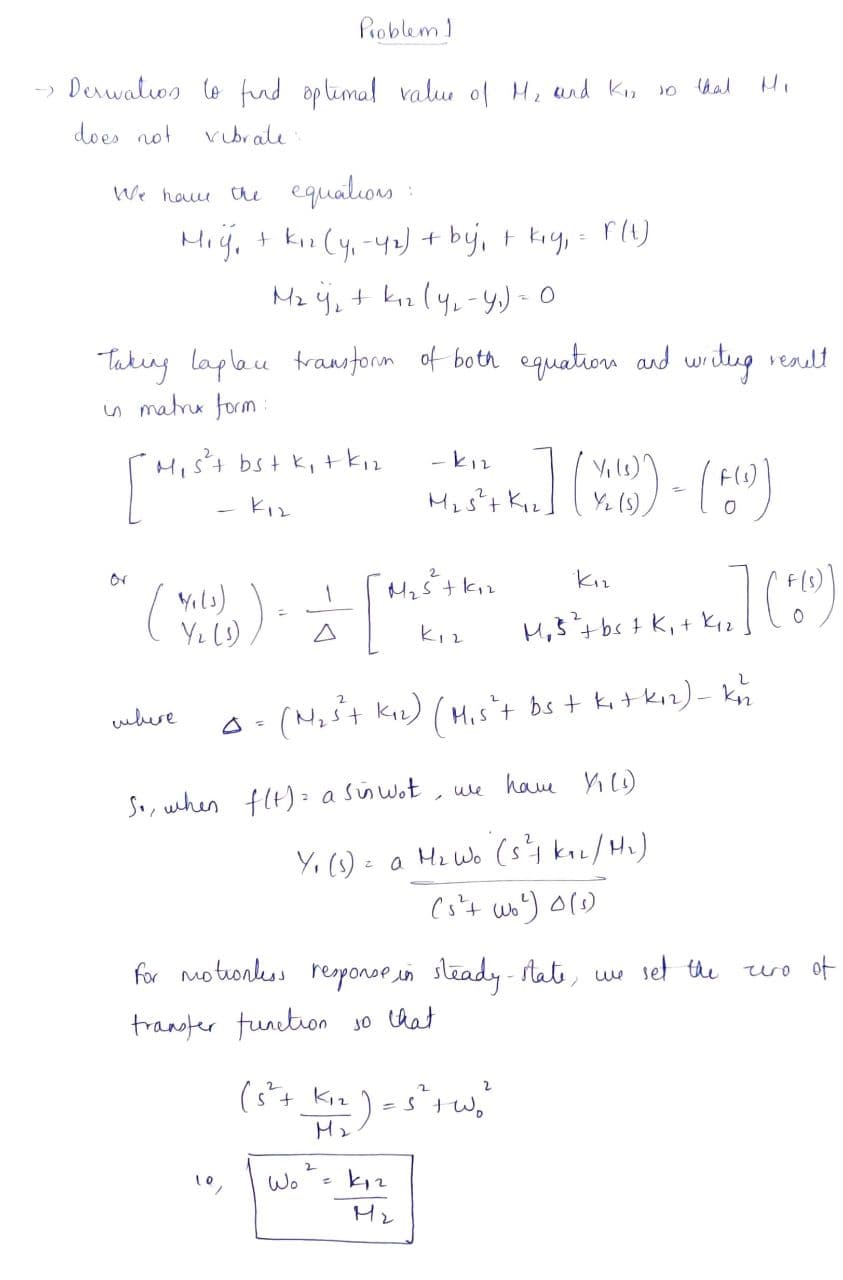 Problem 1
→ Derivation to find optimal value of M₂ and K₁₂ so that M₁
does not vibrate:
We have the equations :
M₁ÿ₁ + k₁₂(y₁-y₂) + bẏ₁ + k₁y₁ = F(t)
M₂ÿ₂ + k₁₂(y₂-y₁) = 0
Taking laplace transform of both equation and writing result
in matrix form:
[ M₁s²+ bs + k₁ + k₁₂   -k₁₂ ] ( Y₁(s) ) = ( F(s) )
[ - K₁₂   M₂s²+ K₁₂ ] ( Y₂(s) )   ( 0 )
or ( Y₁(s) ) = 1/Δ [ M₂s²+ k₁₂   K₁₂ ] ( F(s) )
( Y₂(s) )   [ K₁₂   M₁s²+ bs + K₁ + K₁₂ ] ( 0 )
where Δ = (M₂s²+ K₁₂) (M₁s²+ bs + k₁ + k₁₂) - k₁₂²
So, when f(t) = a sin w₀t , we have Y₁(s)
Y₁(s) = a M₂ w₀ (s²+ k₁₂/M₂)
(s²+ w₀²) Δ(s)
For motionless response in steady-state, we set the zero of
transfer function so that
(s²+ K₁₂/M₂) = s²+ w₀²
io, w₀² = k₁₂/M₂